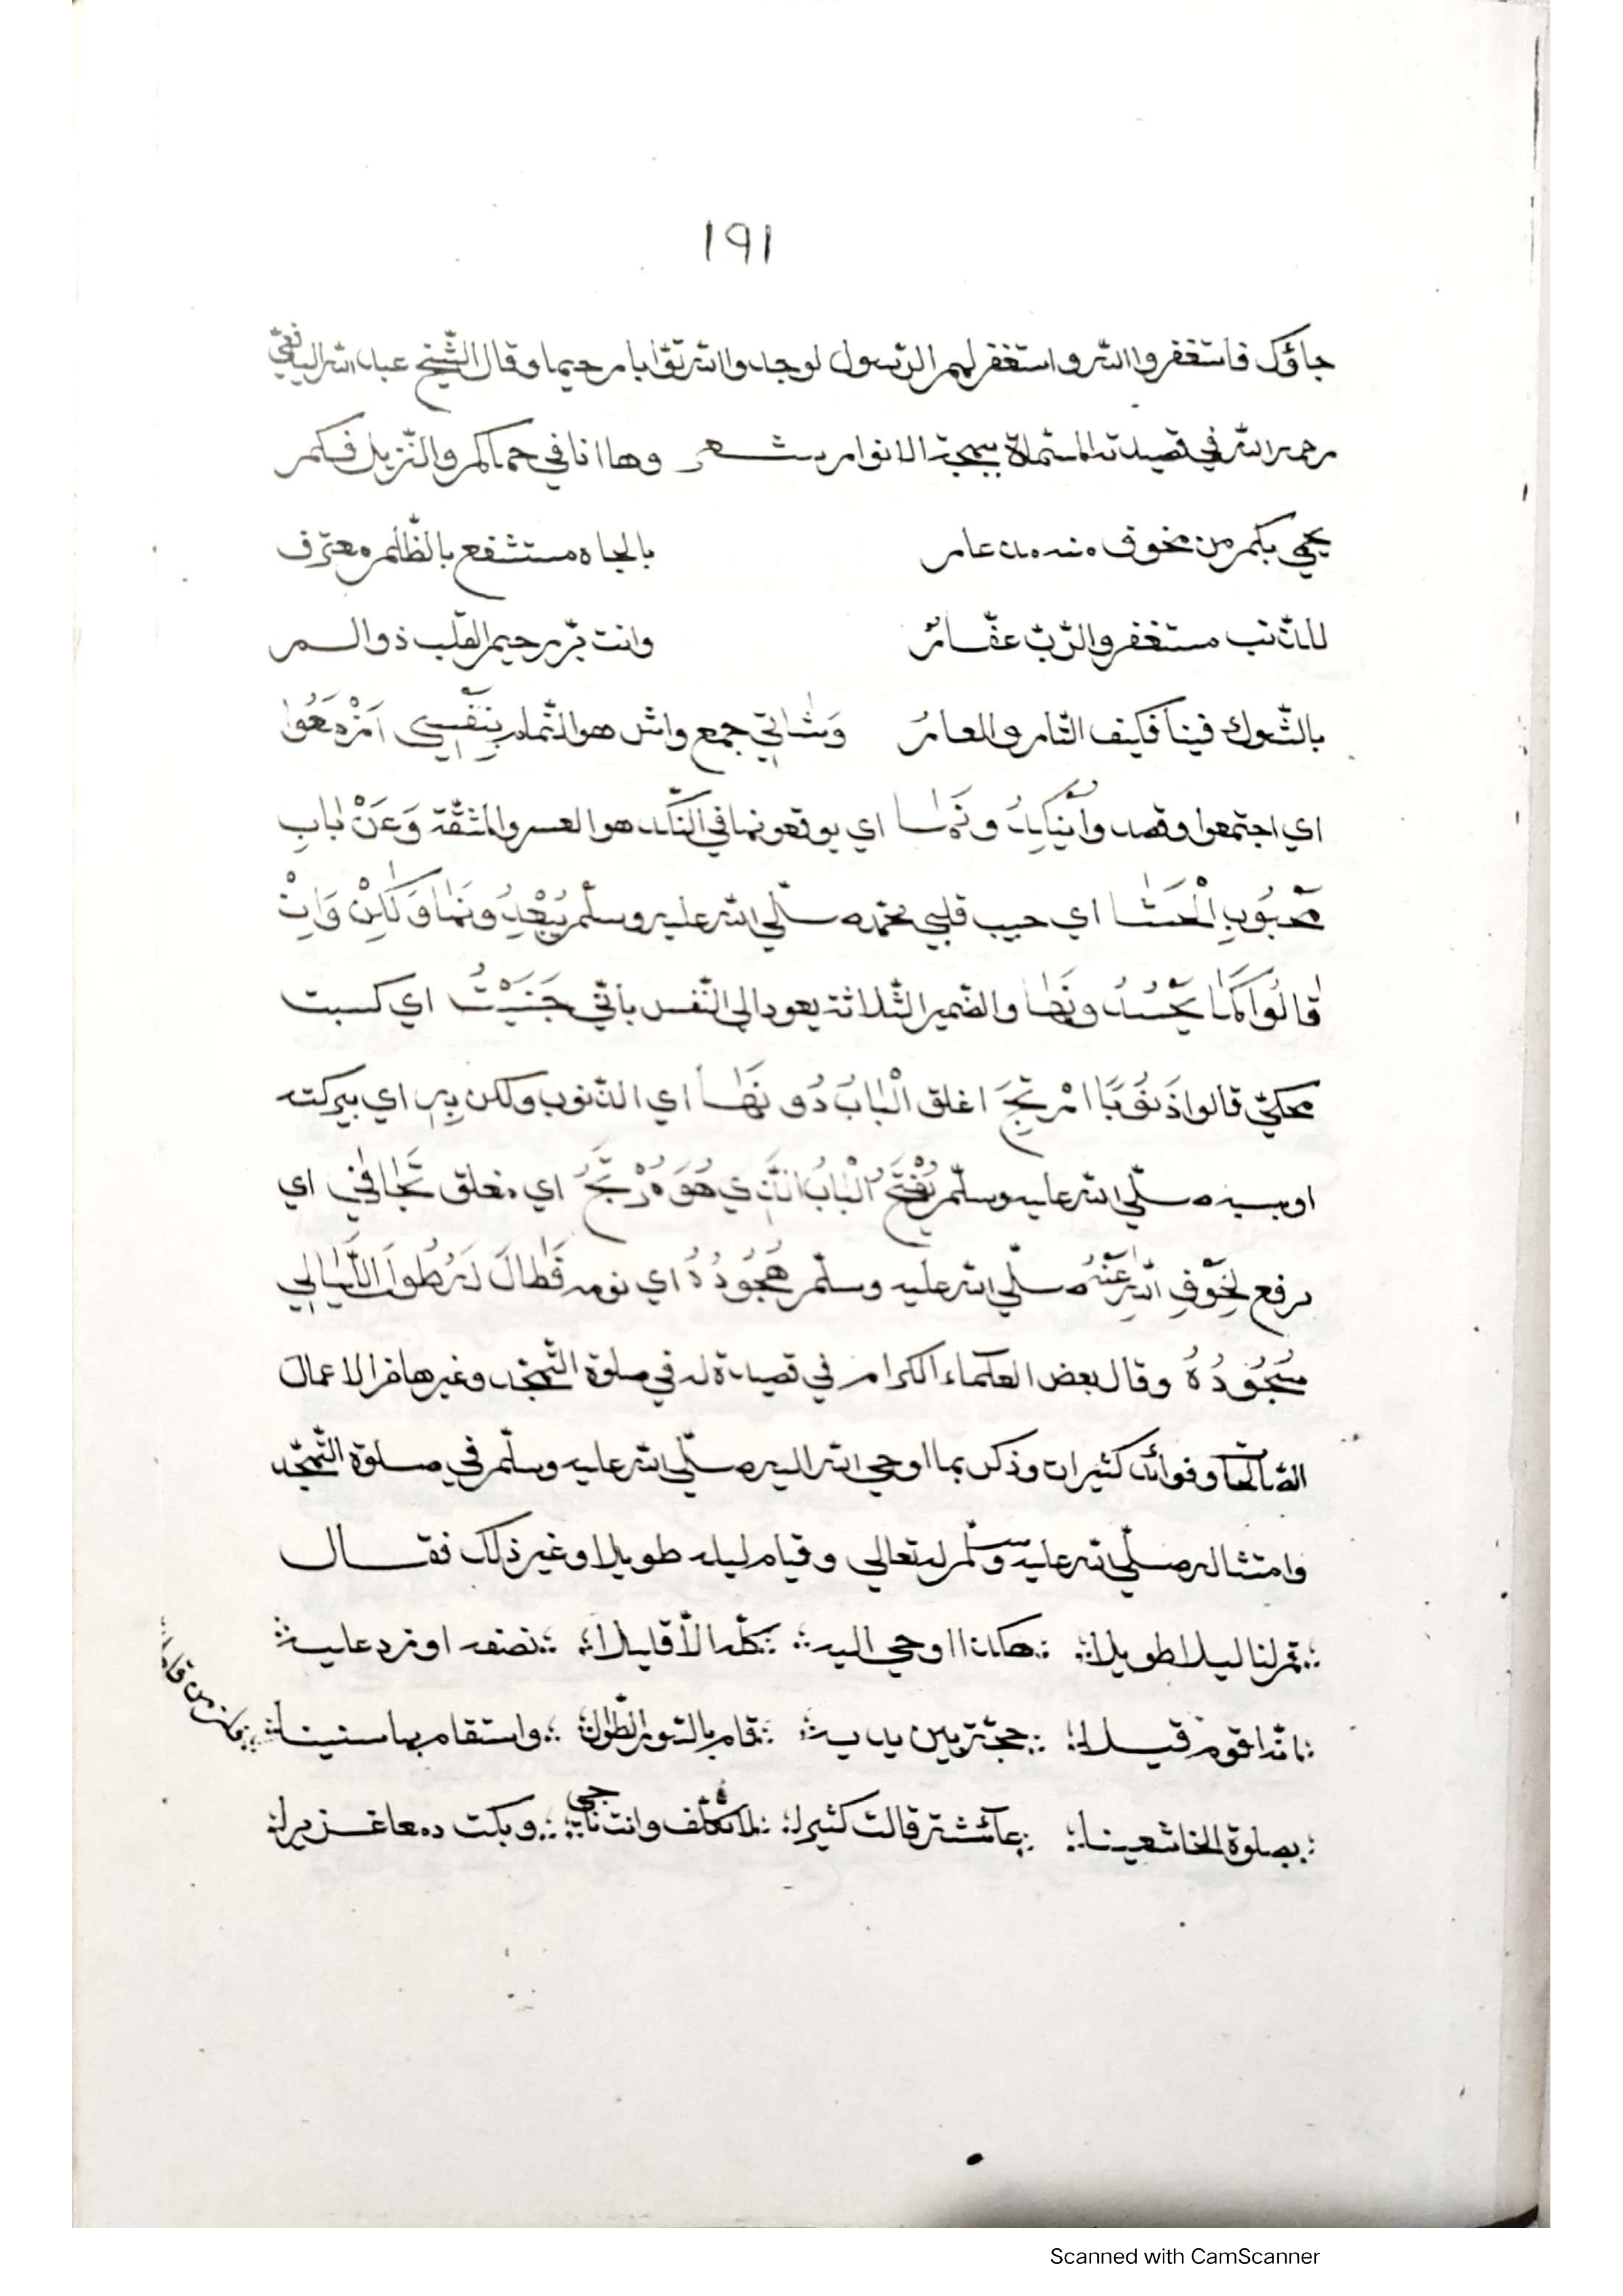 ١٩١
جاؤك فاستغفروا الله واستغفر لهم الرسول لوجدوا الله توّابا رحيما وقال الشّيخ عبد الله اليافعي
رحمه الله في قصيدته المشتملة ببهجة الانوار شعر وها انا في حماكم والنّزيل فكم
يحمي بكم من مخوف منه عامر بالجاه مستشفع بالظّلم معترف
للذّنب مستغفر والرّبّ غفّارُ وانت برّ رحيم القلب ذو السمر
بالشّوك فينا فكيف النّار والعارُ وَشَاتِي جمع واش هو النّمّام بِنَفْسِي اَزْمَعُوا
اي اجتمعوا وقصدوا يُنَكِّدُونَهَا اي يوقعونها في النّكد هو العسر والمشقّة وَعَنْ بَابِ
مَحْبُوبِ الْحَشَا اي حبيب قلبي محمد صلّي الله عليه وسلّم يُبْعِدُونَهَا وَلَكِنْ وَاِنْ
قَالُوا كَمَا يَحْسُدُونَهَا والضمير الثّلاثة يعود الي النّفس بأنّي جَنَيْتُ اي كسبت
محكيّ قالوا ذَنُوبًا اُرْتِجَ اغلق الْبَابُ دُونَهَا اي الذّنوب ولكن بِهِ اي ببركته
او بسببه صلّي الله عليه وسلّم يُفْتَحُ الْبَابُ الَّذِي هُوَ مُرْتَجُ اي مغلق تَجَافَي اي
رفع لِخَوْفِ اللهِ عَنْهُ صلّي الله عليه وسلّم هُجُودُهُ اي نومه فَطَالَ لَهُ طُولَ اللَّيَالِي
سُجُودُهُ وقال بعض العلماء الكرام في قصيدة له في صلوة التّهجّد وغيرها من الاعمال
الصّالحات وفوائد كثيرات وذكر بما اوحي الله اليه صلّي الله عليه وسلّم في صلوة التّهجّد
وامتثاله صلّي الله عليه وسلّم له تعالي وقيام ليله طويلا وغير ذلك فقال
؞ قم لنا ليلا طويلا ؞ ؞ هكذا اوحي اليه ؞ ؞ كلّه الّا قليلا ؞ ؞ نصفه او زد عليه ؞
؞ انّه اقوم قيلا ؞ ؞ حجّة بين يديه ؞ ؞ قام بالسّور الطّوال ؞ ؞ واستقام بها سنينا ؞
؞ بصلوة الخاشعينا ؞ ؞ عائشة قالت كثيرا ؞ ؞ لا تكلّف وانت ناجي ؞ ؞ وبكت دمعا غزيرا ؞
Scanned with CamScanner